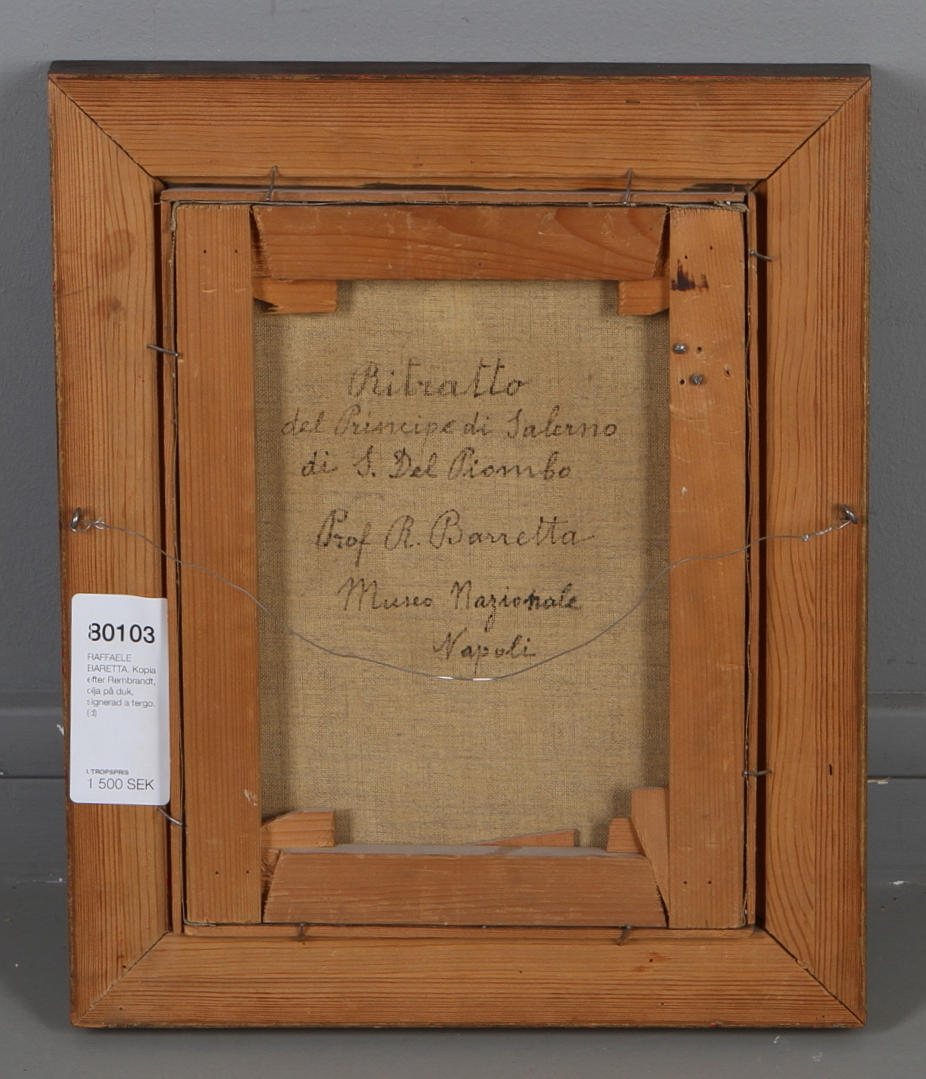 Ritratto
del Principe di Salerno
di S. Del Piombo
Prof R. Barretta
Museo Nazionale
Napoli
80103
RAFFAELE
BARETTA. Kopia
efter Rembrandt,
olja på duk,
signerad a tergo.
UTROPSPRIS
1 500 SEK